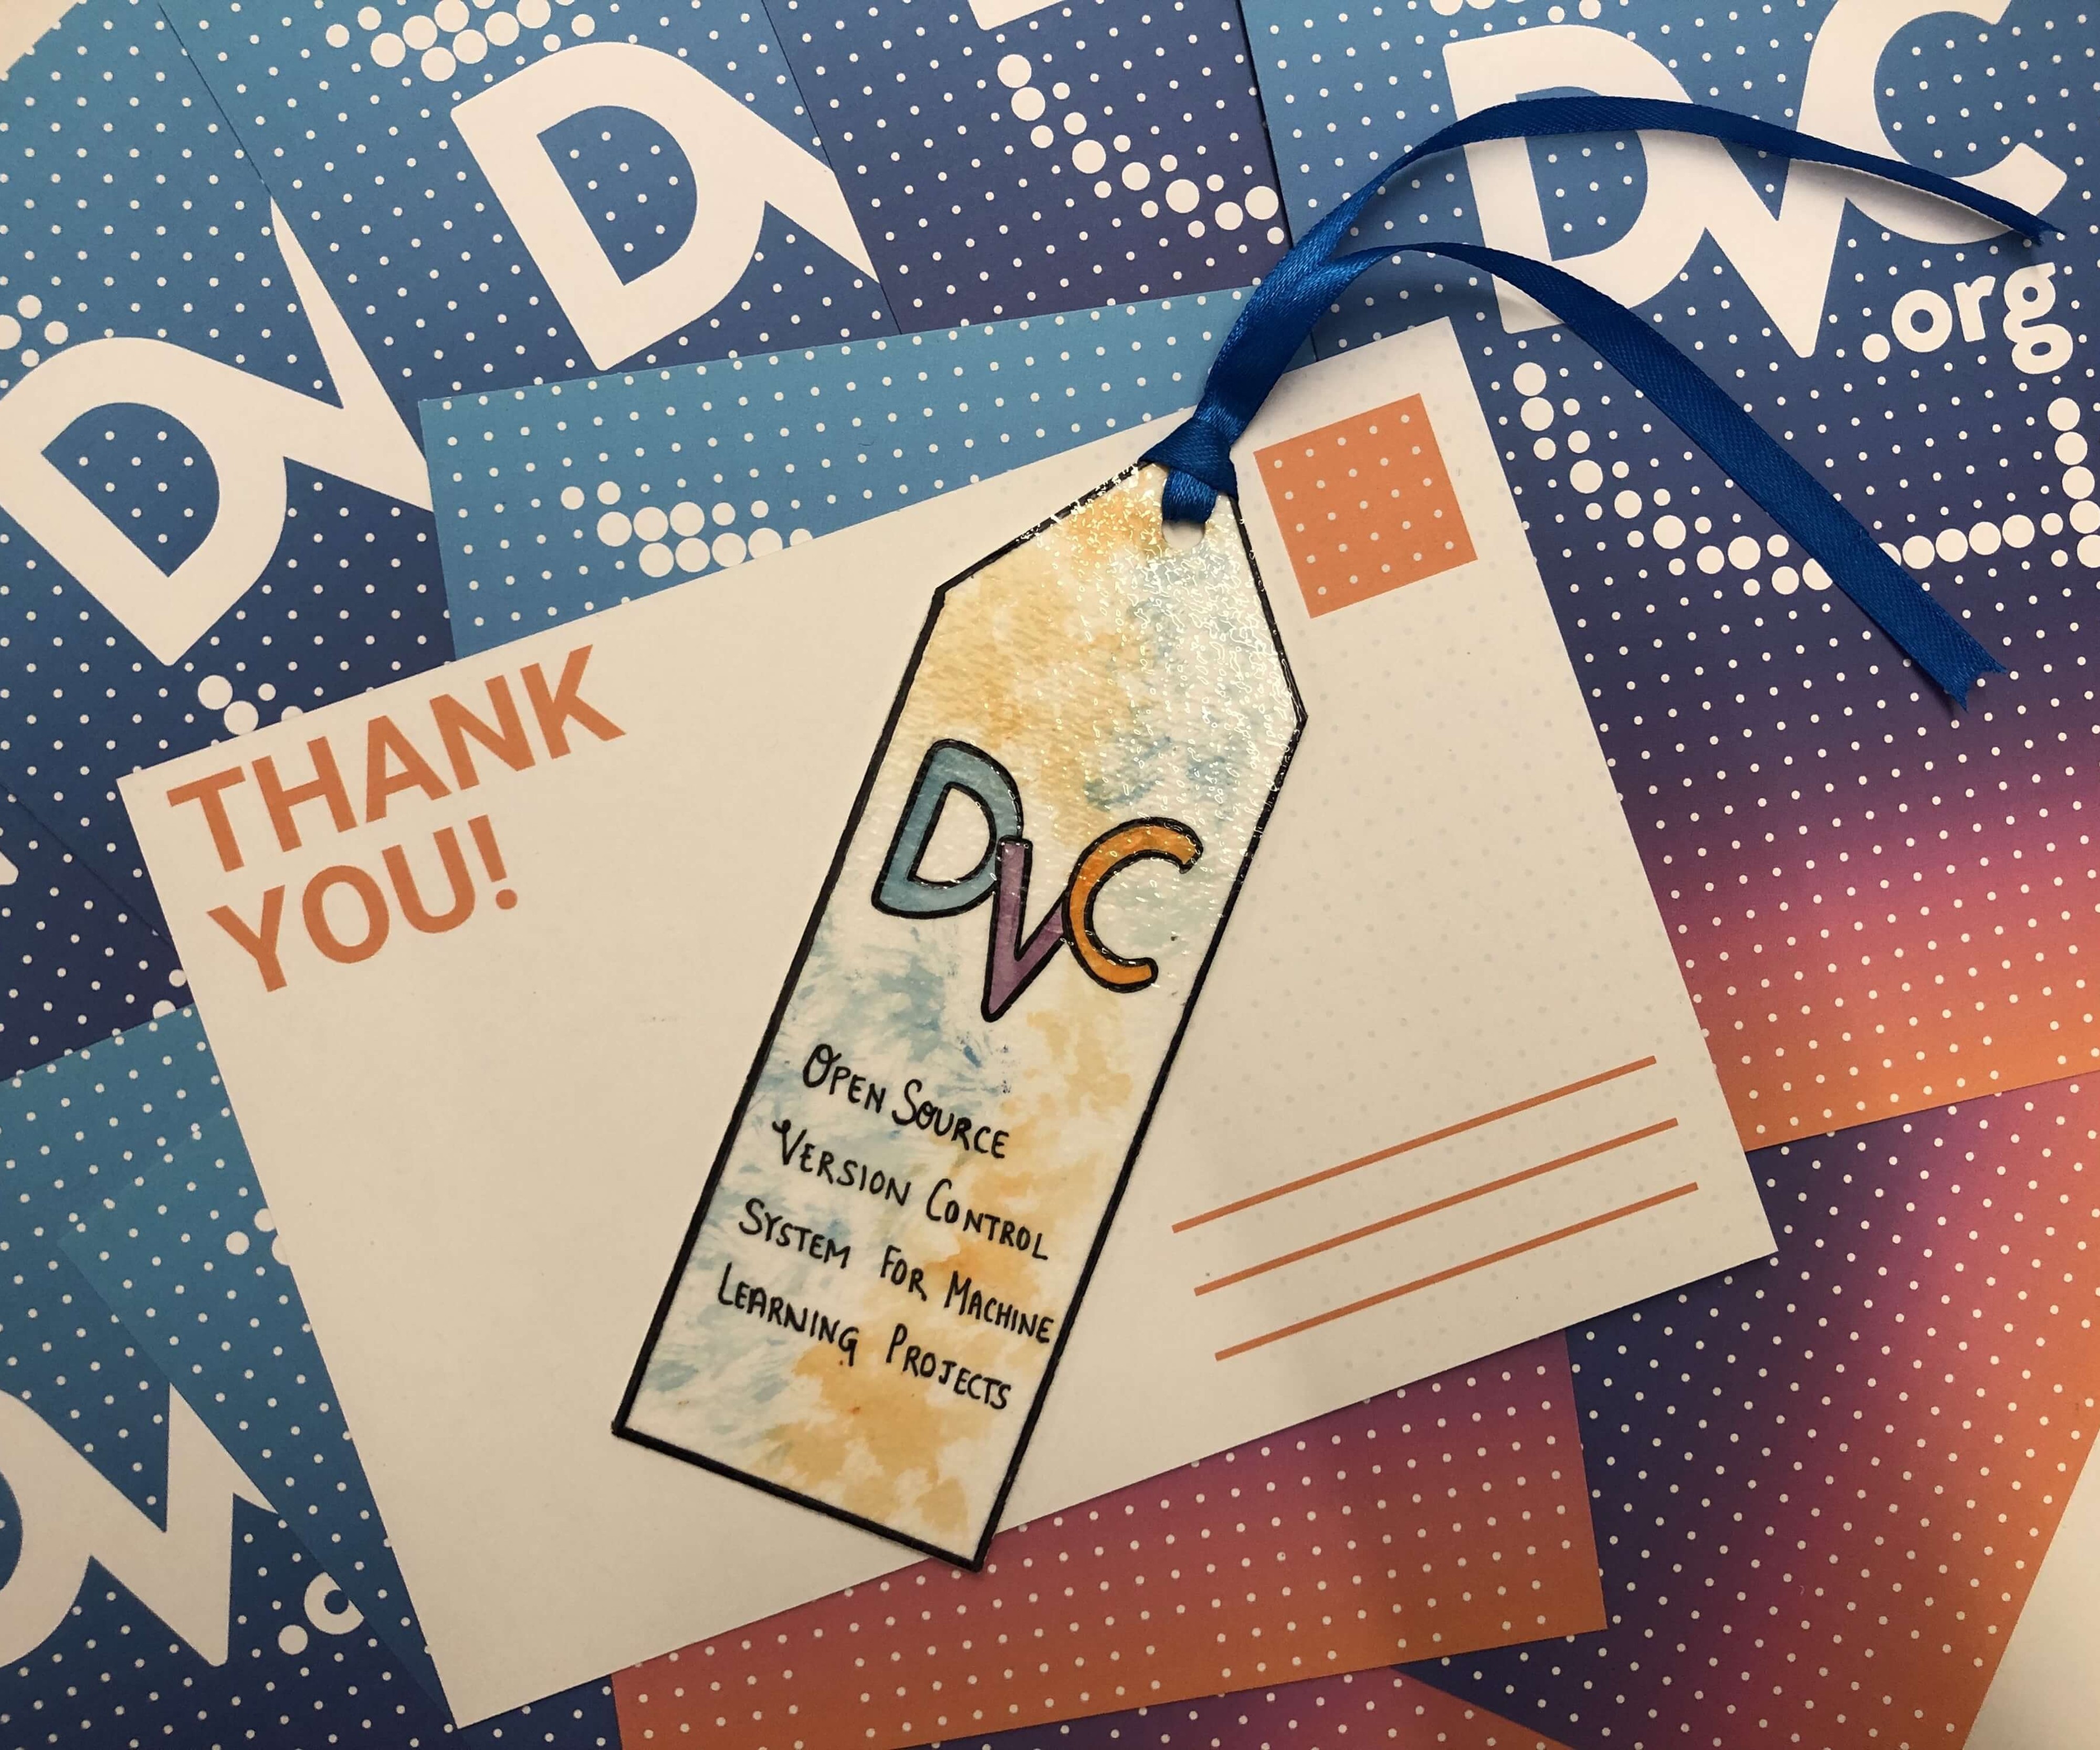 DV
DV
DVC
.org
THANK
YOU!
DVC
OPEN SOURCE
VERSION CONTROL
SYSTEM FOR MACHINE
LEARNING PROJECTS